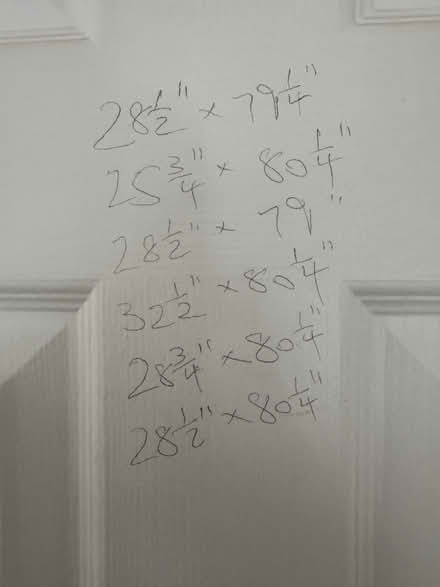 28 1/2" x 79 1/4"
25 3/4" x 80 1/4"
28 1/2" x 79"
32 1/2" x 80 1/4"
28 3/4" x 80 1/4"
28 1/2" x 80 1/4"